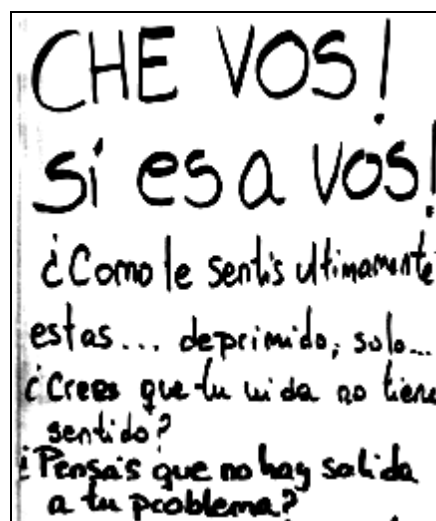 CHE VOS!
Si es a VOS!
¿Como te sentis ultimamente
estas... deprimido, solo...
¿Crees que tu vida no tiene
sentido?
¿Pensais que no hay salida
a tu problema?